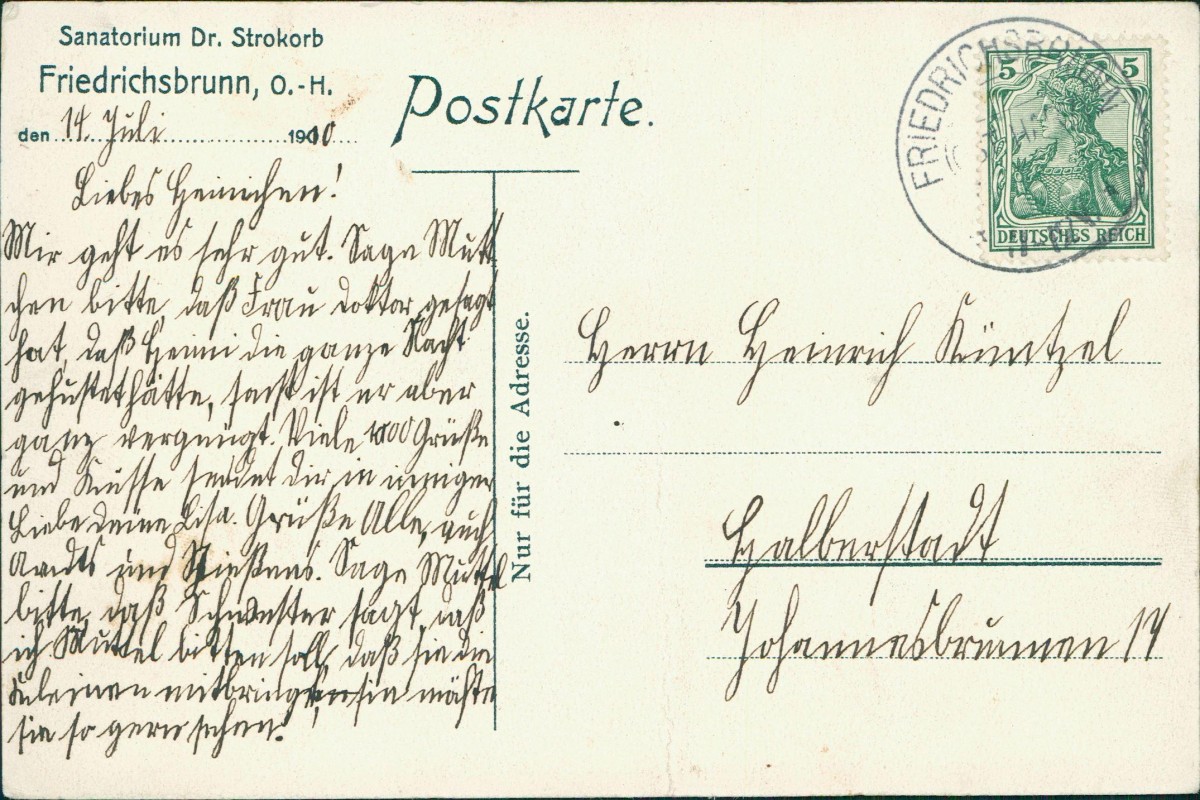 Sanatorium Dr. Strokorb
Friedrichsbrunn, O.-H.
den 14. Juli 1910
Postkarte.
Liebes Heinichen!
Mir geht es sehr gut. Sage Mutt
chen bitte, daß Frau Doktor gesagt
hat, daß Heini die ganze Nacht
gehustet hätte, sonst ist er aber
ganz vergnügt. Viele 1000 Grüße
und Küsse sendet Dir in inniger
Liebe deine Lisa. Grüße Alle, auch
und Sage Muttel
bitte, daß Schwester sagt, daß
ich Muttel bitten soll, daß sie die
Kleinen mitbringt, sie möchte
sie so gern sehen!
Nur für die Adresse.
FRIEDRICHSBRUNN
5 5
DEUTSCHES REICH
Herrn Heinrich Küntzel
Halberstadt
Johannesbrunnen 17